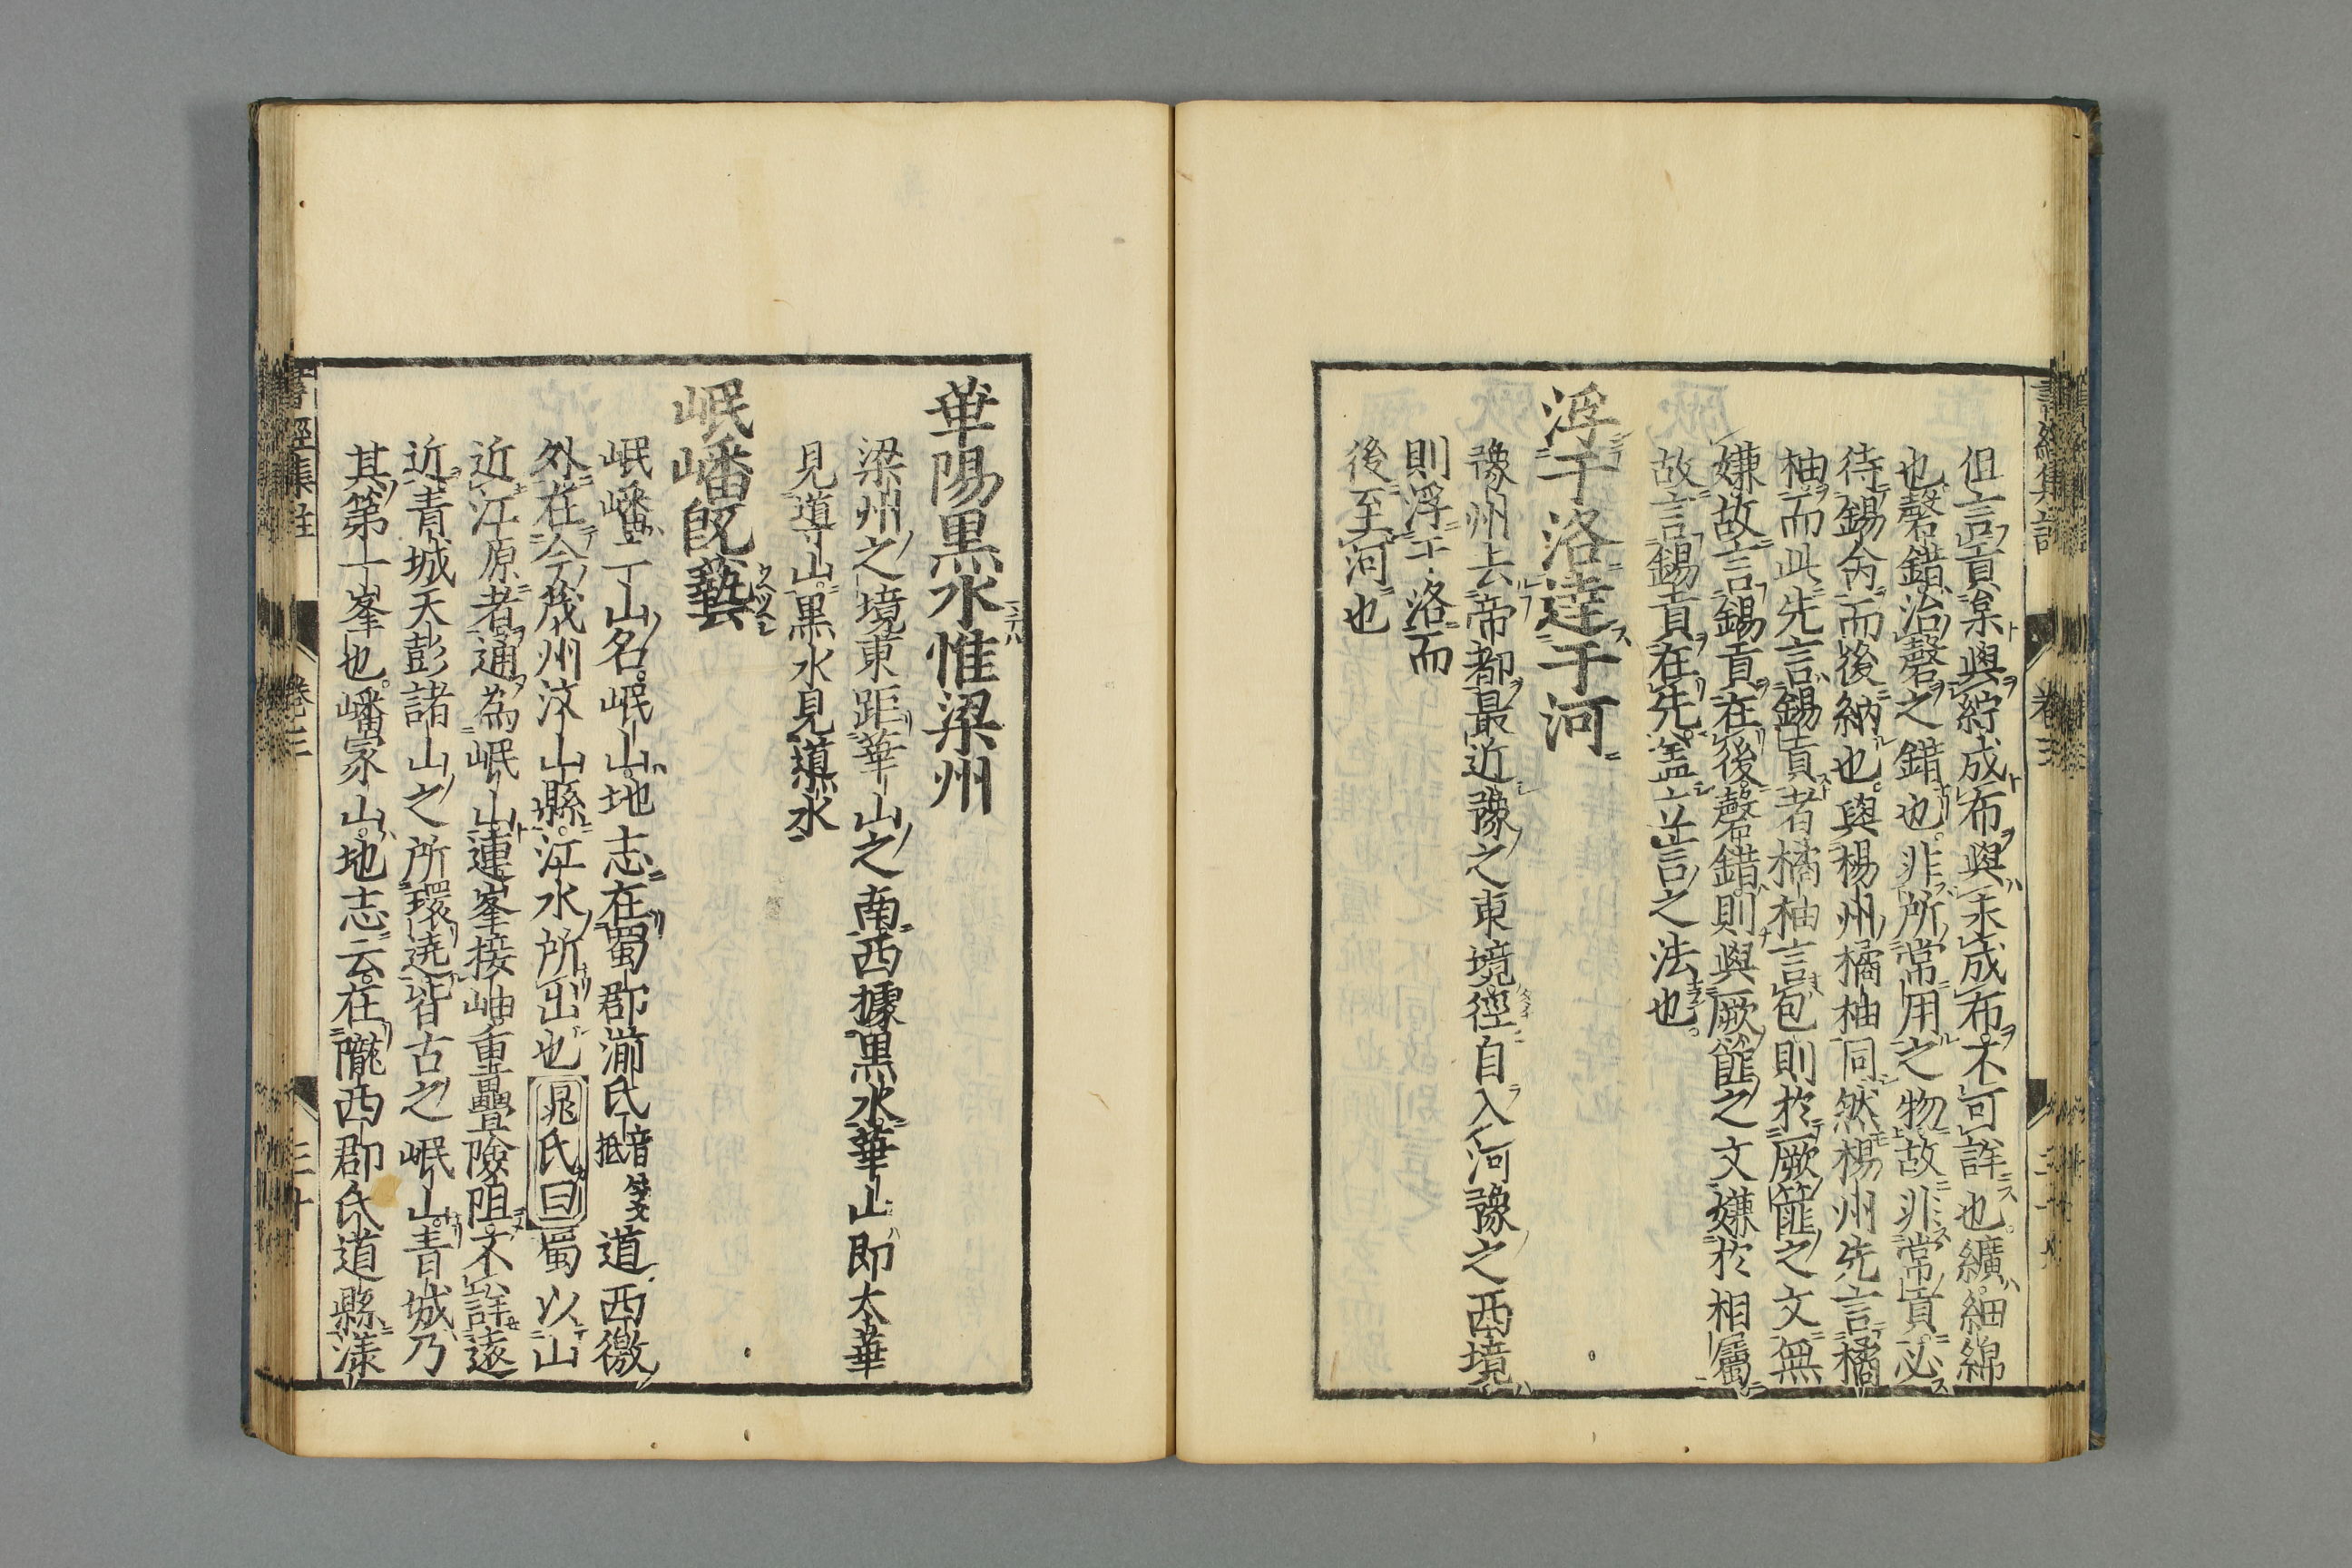 但言貢枲與紵成布與未成布不可詳也纊細綿
也磬錯治磬之錯也非所常用之物故非常貢必
待錫命而後納也與楊州橘柚同然楊州先言橘
柚而此先言錫貢者橘柚言包則於厥篚之文無
嫌故言錫貢在後磬錯則與厥篚之文嫌於相屬
故言錫貢在先盖立言之法也
浮于洛達于河
豫州去帝都最近豫之東境徑自入河豫之西境
則浮于洛而
後至河也
華陽黒水惟梁州
梁州之境東距華山之南西據黒水華山即太華
見導山黒水見導水
岷嶓既藝
岷嶓二山名岷山地志在蜀郡湔氐音抵箋文道西徼
外在今茂州汶山縣江水所出也晁氏曰蜀以山
近江原者通為岷山連峯接岫重疊險阻不詳遠
近青城天彭諸山之所環遶皆古之岷山青城乃
其第一峯也嶓冢山地志云在隴西郡氐道縣漾
書經集註 卷三 三十